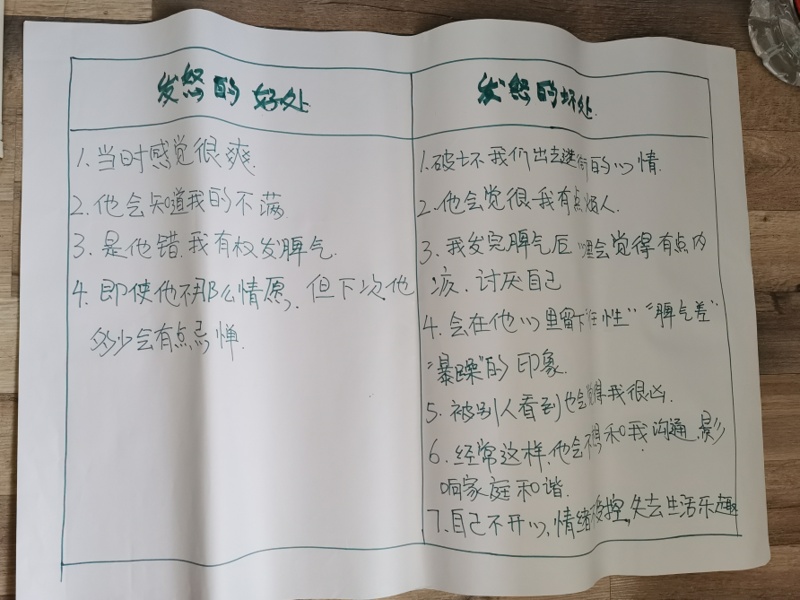 发怒的好处
1.当时感觉很爽.
2.他会知道我的不满
3.是他错.我有权发脾气.
4.即使他不那么情愿,但下次他
多少会有点忌惮.
发怒的坏处
1.破坏我们出去逛街的心情.
2.他会觉得我有点烦人.
3.我发完脾气后心里会觉得有点内
疚.讨厌自己
4.会在他心里留下"任性""脾气差"
"暴躁"的印象.
5.被别人看到也会觉得我很凶.
6.经常这样.他会不想和我沟通.影
响家庭和谐.
7.自己不开心,情绪受控,失去生活乐趣